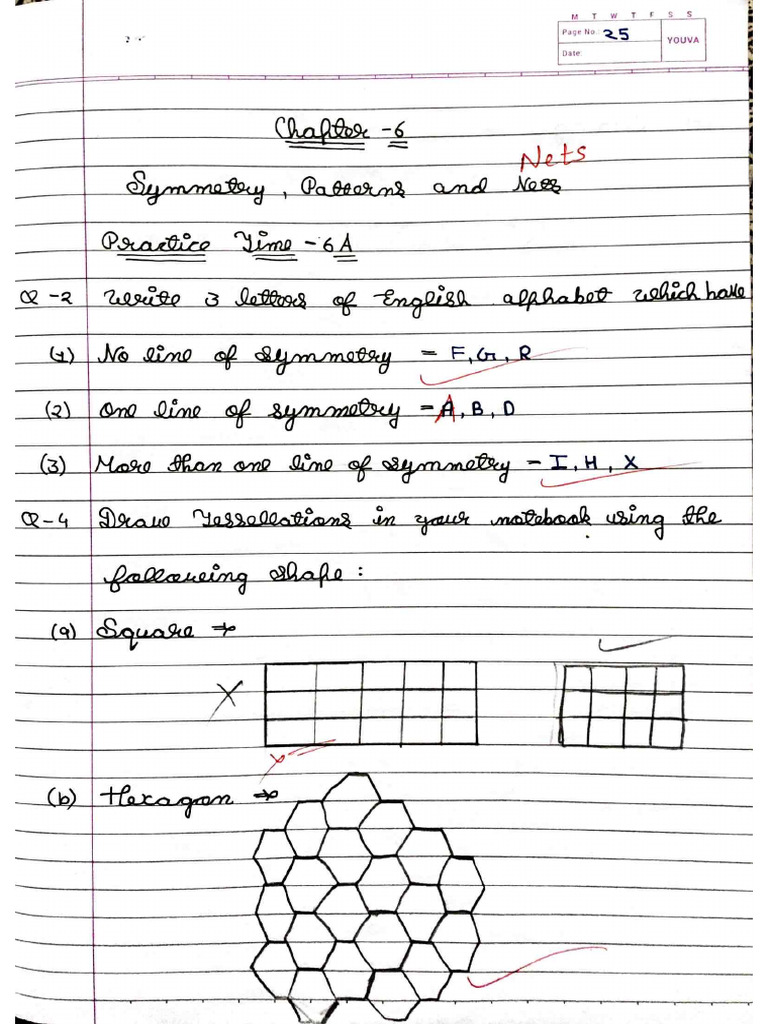 M T W T F S S
Page No.: 25
YOUVA
Date:
Chapter - 6
Nets
Symmetry, Patterns and Nets
Practice Time - 6 A
Q -2 Write 3 letters of English alphabet which have
(1) No line of symmetry = F, G, R
(2) One line of symmetry = A, B, D
(3) More than one line of symmetry - I, H, X
Q-4 Draw Tessellations in your notebook using the
following shape :
(a) Square →
(b) Hexagon →